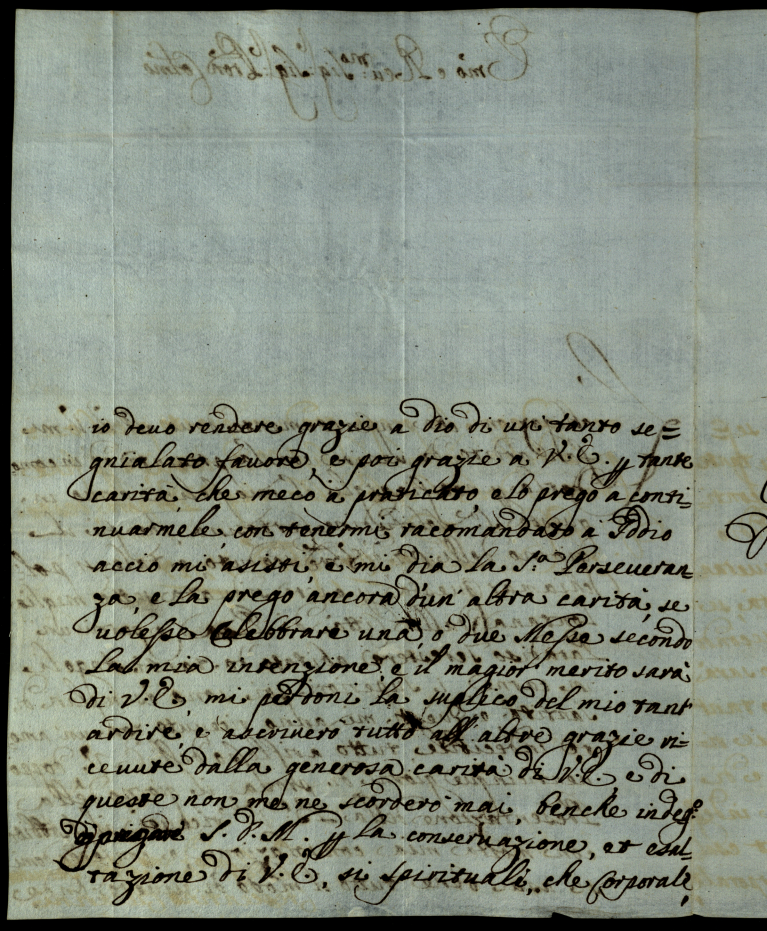 io devo rendere grazie a dio di un tanto se=
gnialato favore, e poi grazie a V. E. p tante
carità, che meco à praticato, e lo prego a conti=
nuarmele, con tenermi racomandato a Iddio
accio mi asisti, e mi dia la S.a Perseveran=
za, e la prego ancora d'un altra carità, se
volesse Celebbrare una, o due Messe secondo
La mia intenzione, e il magior merito sarà
di V. E. mi perdoni la suplico del mio tant
ardire, e ascriverò tutto all altre grazie ri=
cevute dalla generosa carità di V. E. e di
queste non me ne scorderò mai, benche indeg.o
pregare S. D. M. p la conservazione, et esal=
tazione di V. E., si spirituali, che Corporali,